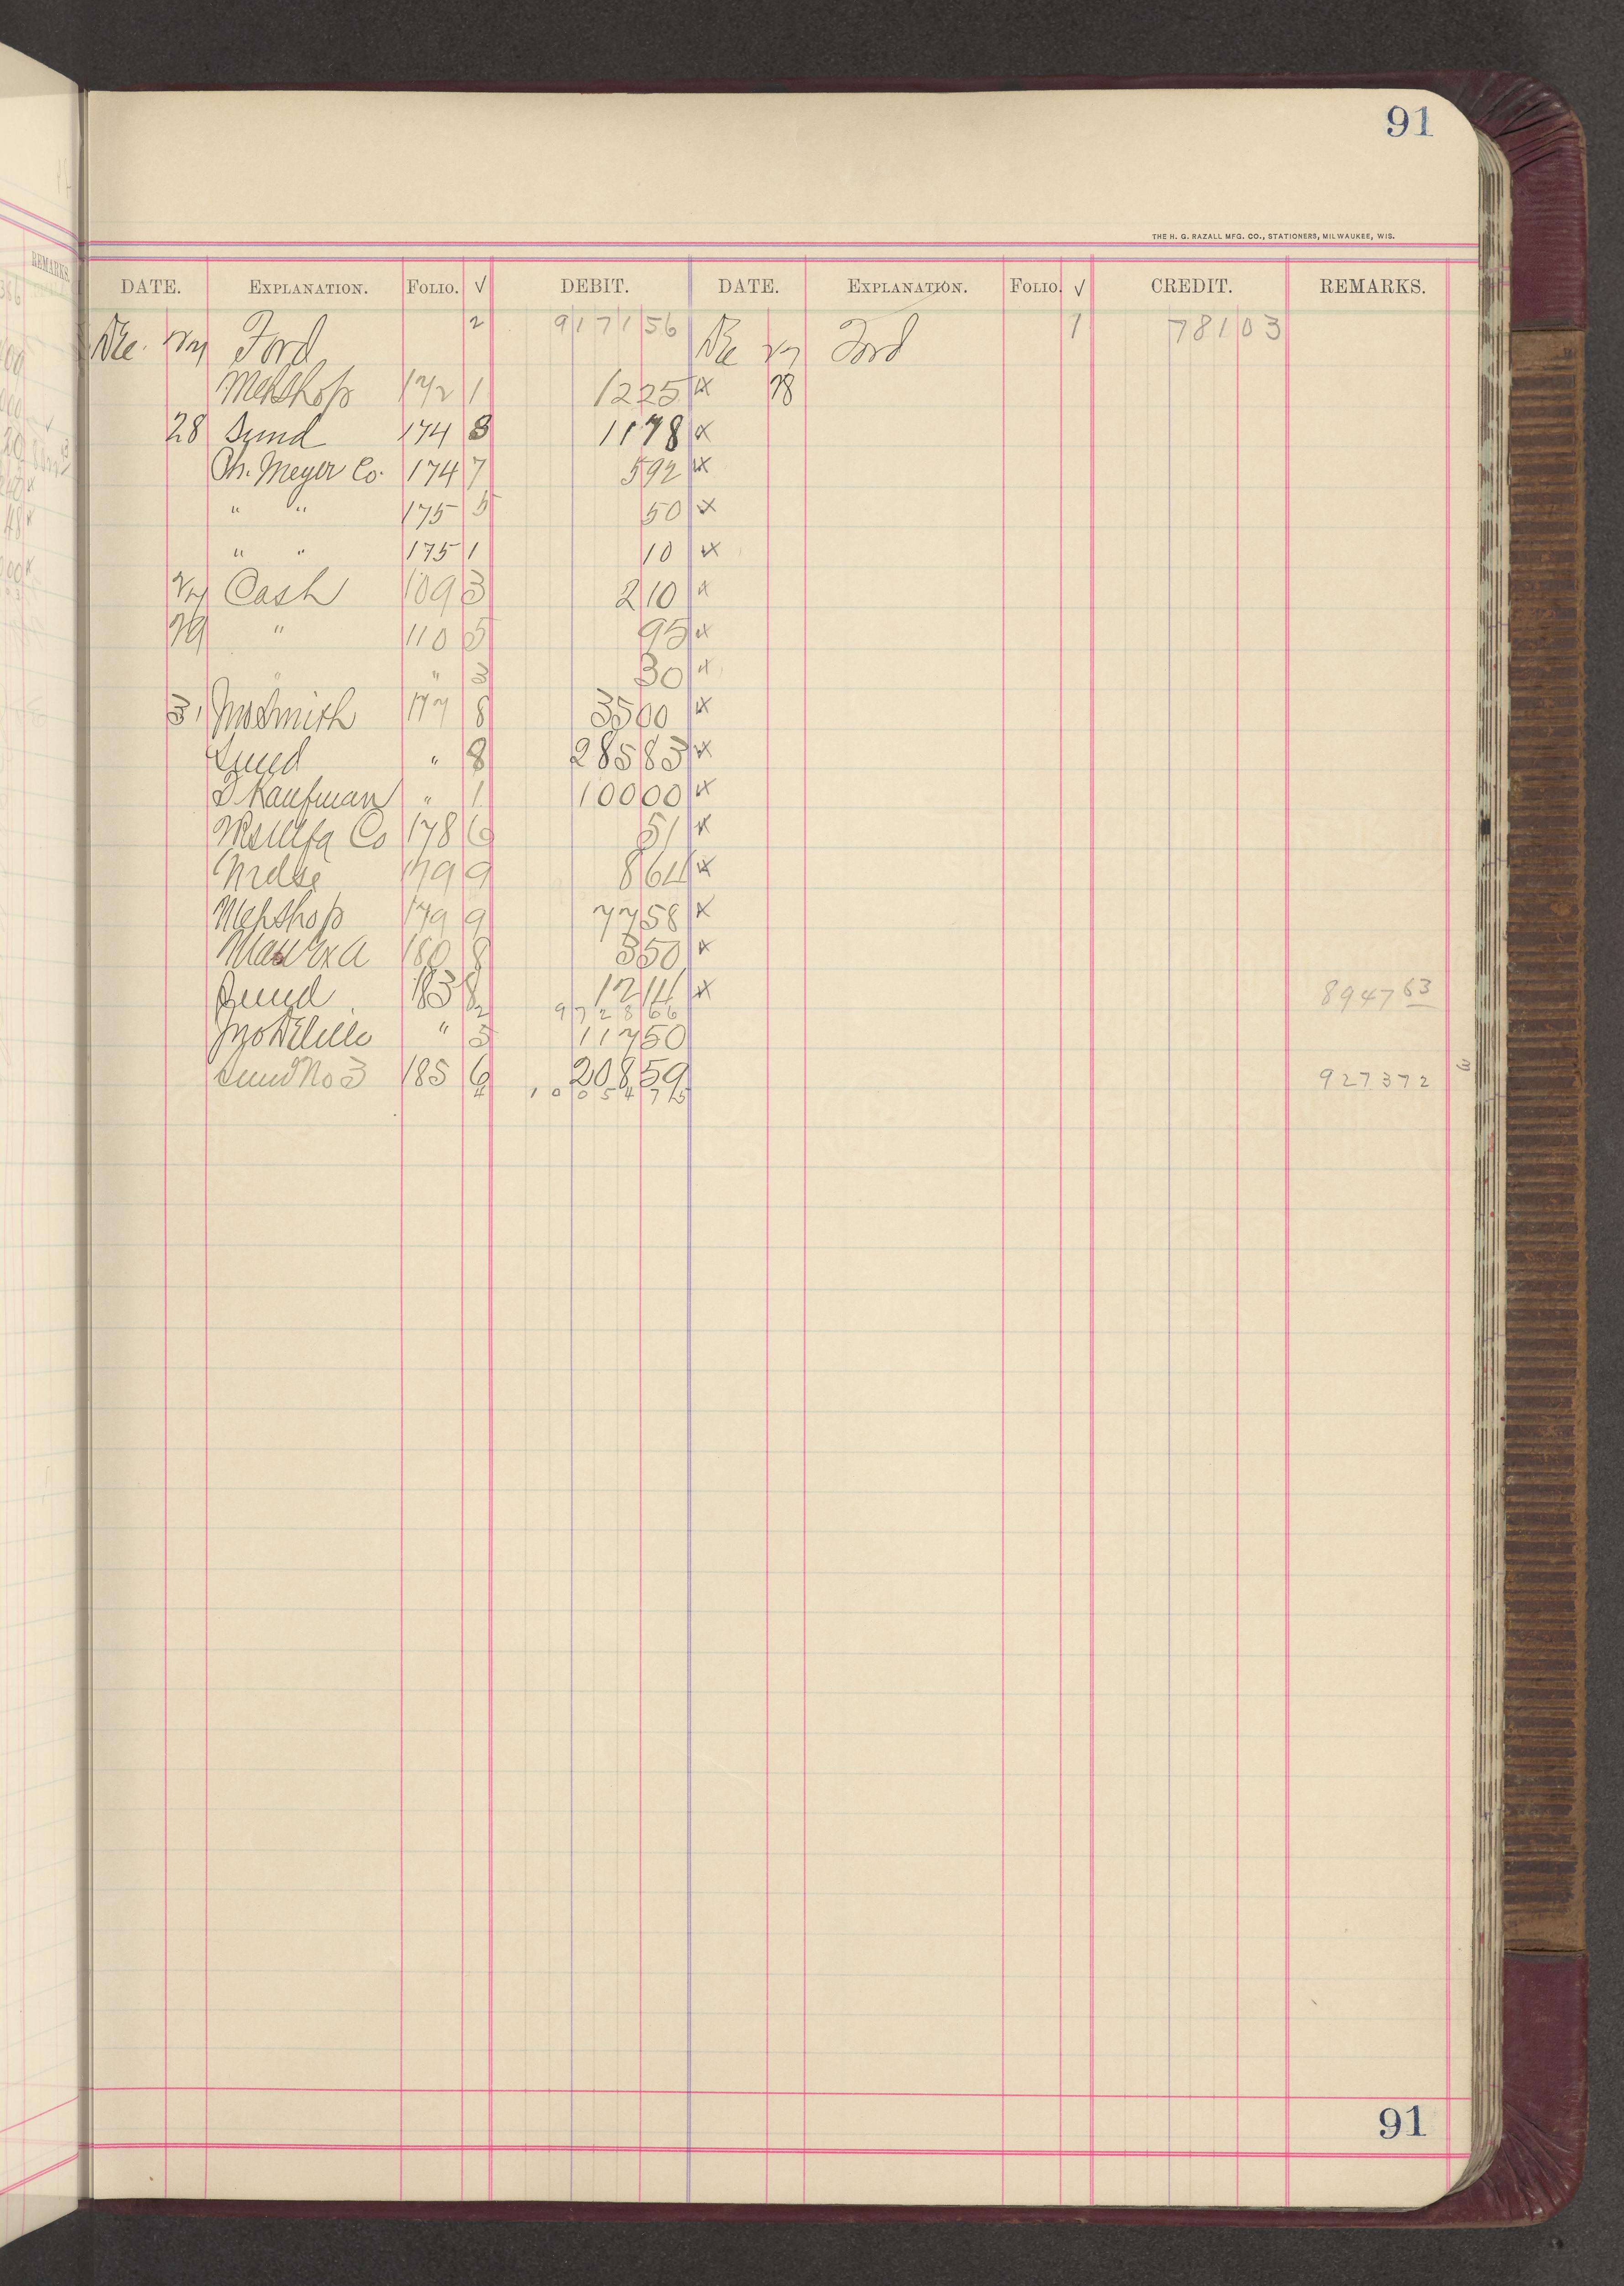 91
THE H. G. RAZALL MFG. CO., STATIONERS, MILWAUKEE, WIS.
REMARKS.
DATE. EXPLANATION. FOLIO. √ DEBIT. DATE. EXPLANATION. FOLIO. √ CREDIT. REMARKS.
Dec. 27 Ford 2 9171 56 Dec 27 Ford 1 781 03
Mchshop 172 1 12 25 x 28
28 Sund 174 8 11 78 x
Ch. Meyer Co. 174 7 5 92 x
" " 175 5 50 x
" " 175 1 10 x
27 Cash 109 3 2 10 x
29 " 110 5 95 x
" " 3 30 x
31 Jno Smith 177 8 35 00 x
Sund " 8 285 83 x
D Kaufman " 1 100 00 x
178 6 51 x
Mdse 179 9 8 64 x
Mchshop 179 9 77 58 x
180 8 3 50 x
Sund 183 8 12 14 x 8947 63
2 9728 66
" 5 117 50
Sund No 3 185 6 208 59 9273 72 3
4 10054 75
91